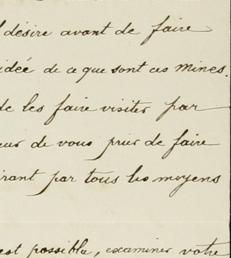 désire avant de faire
idée de ce que sont ces mines.
de les faire visiter par
eur de vous prier de faire
irant par tous les moyens
est possible, examiner votre